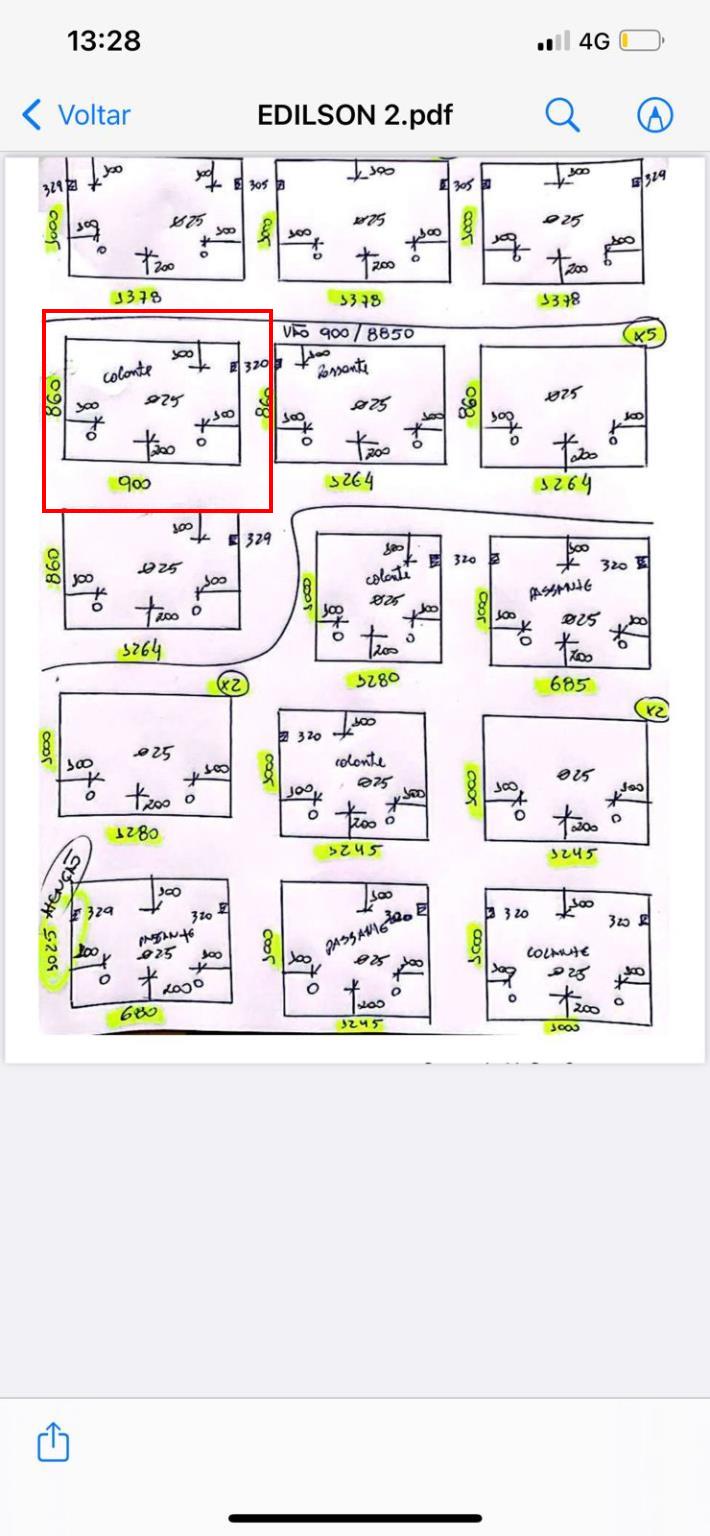 13:28
4G
Voltar
EDILSON 2.pdf
329 300 300 305 300 305 300 329
3000 300 ⌀25 300 3000 300 ⌀25 300 3000 300 ⌀25 300
200 200 200
1378 1378 1378
VÃO 900 / 8850 X5
860 colante 300 320 860 300 Passante 860
300 ⌀25 300 300 ⌀25 300 300 ⌀25 300
200 200 200
900 1264 1264
860 300 329
300 ⌀25 300
200
1264
300 colante 320 300 320
300 ⌀25 300 PASSANTE 300 ⌀25 300
200 200
1280 685
X2 X2
300 ⌀25 300 320 300 colante 300 ⌀25 300 300 ⌀25 300
200 200 200
1280 1245 1245
ATENÇÃO
1025 329 300 320 300 320 320 300 320
300 PASSANTE ⌀25 300 300 PASSANTE ⌀25 300 300 COLANTE ⌀25 300
200 200 200
680 1245 1000